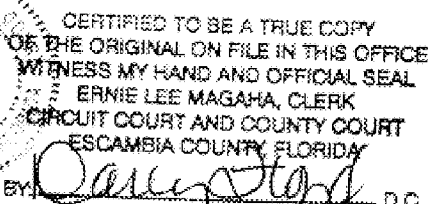 CERTIFIED TO BE A TRUE COPY
OF THE ORIGINAL ON FILE IN THIS OFFICE
WITNESS MY HAND AND OFFICIAL SEAL
ERNIE LEE MAGAHA, CLERK
CIRCUIT COURT AND COUNTY COURT
ESCAMBIA COUNTY FLORIDA
BY: D.C.